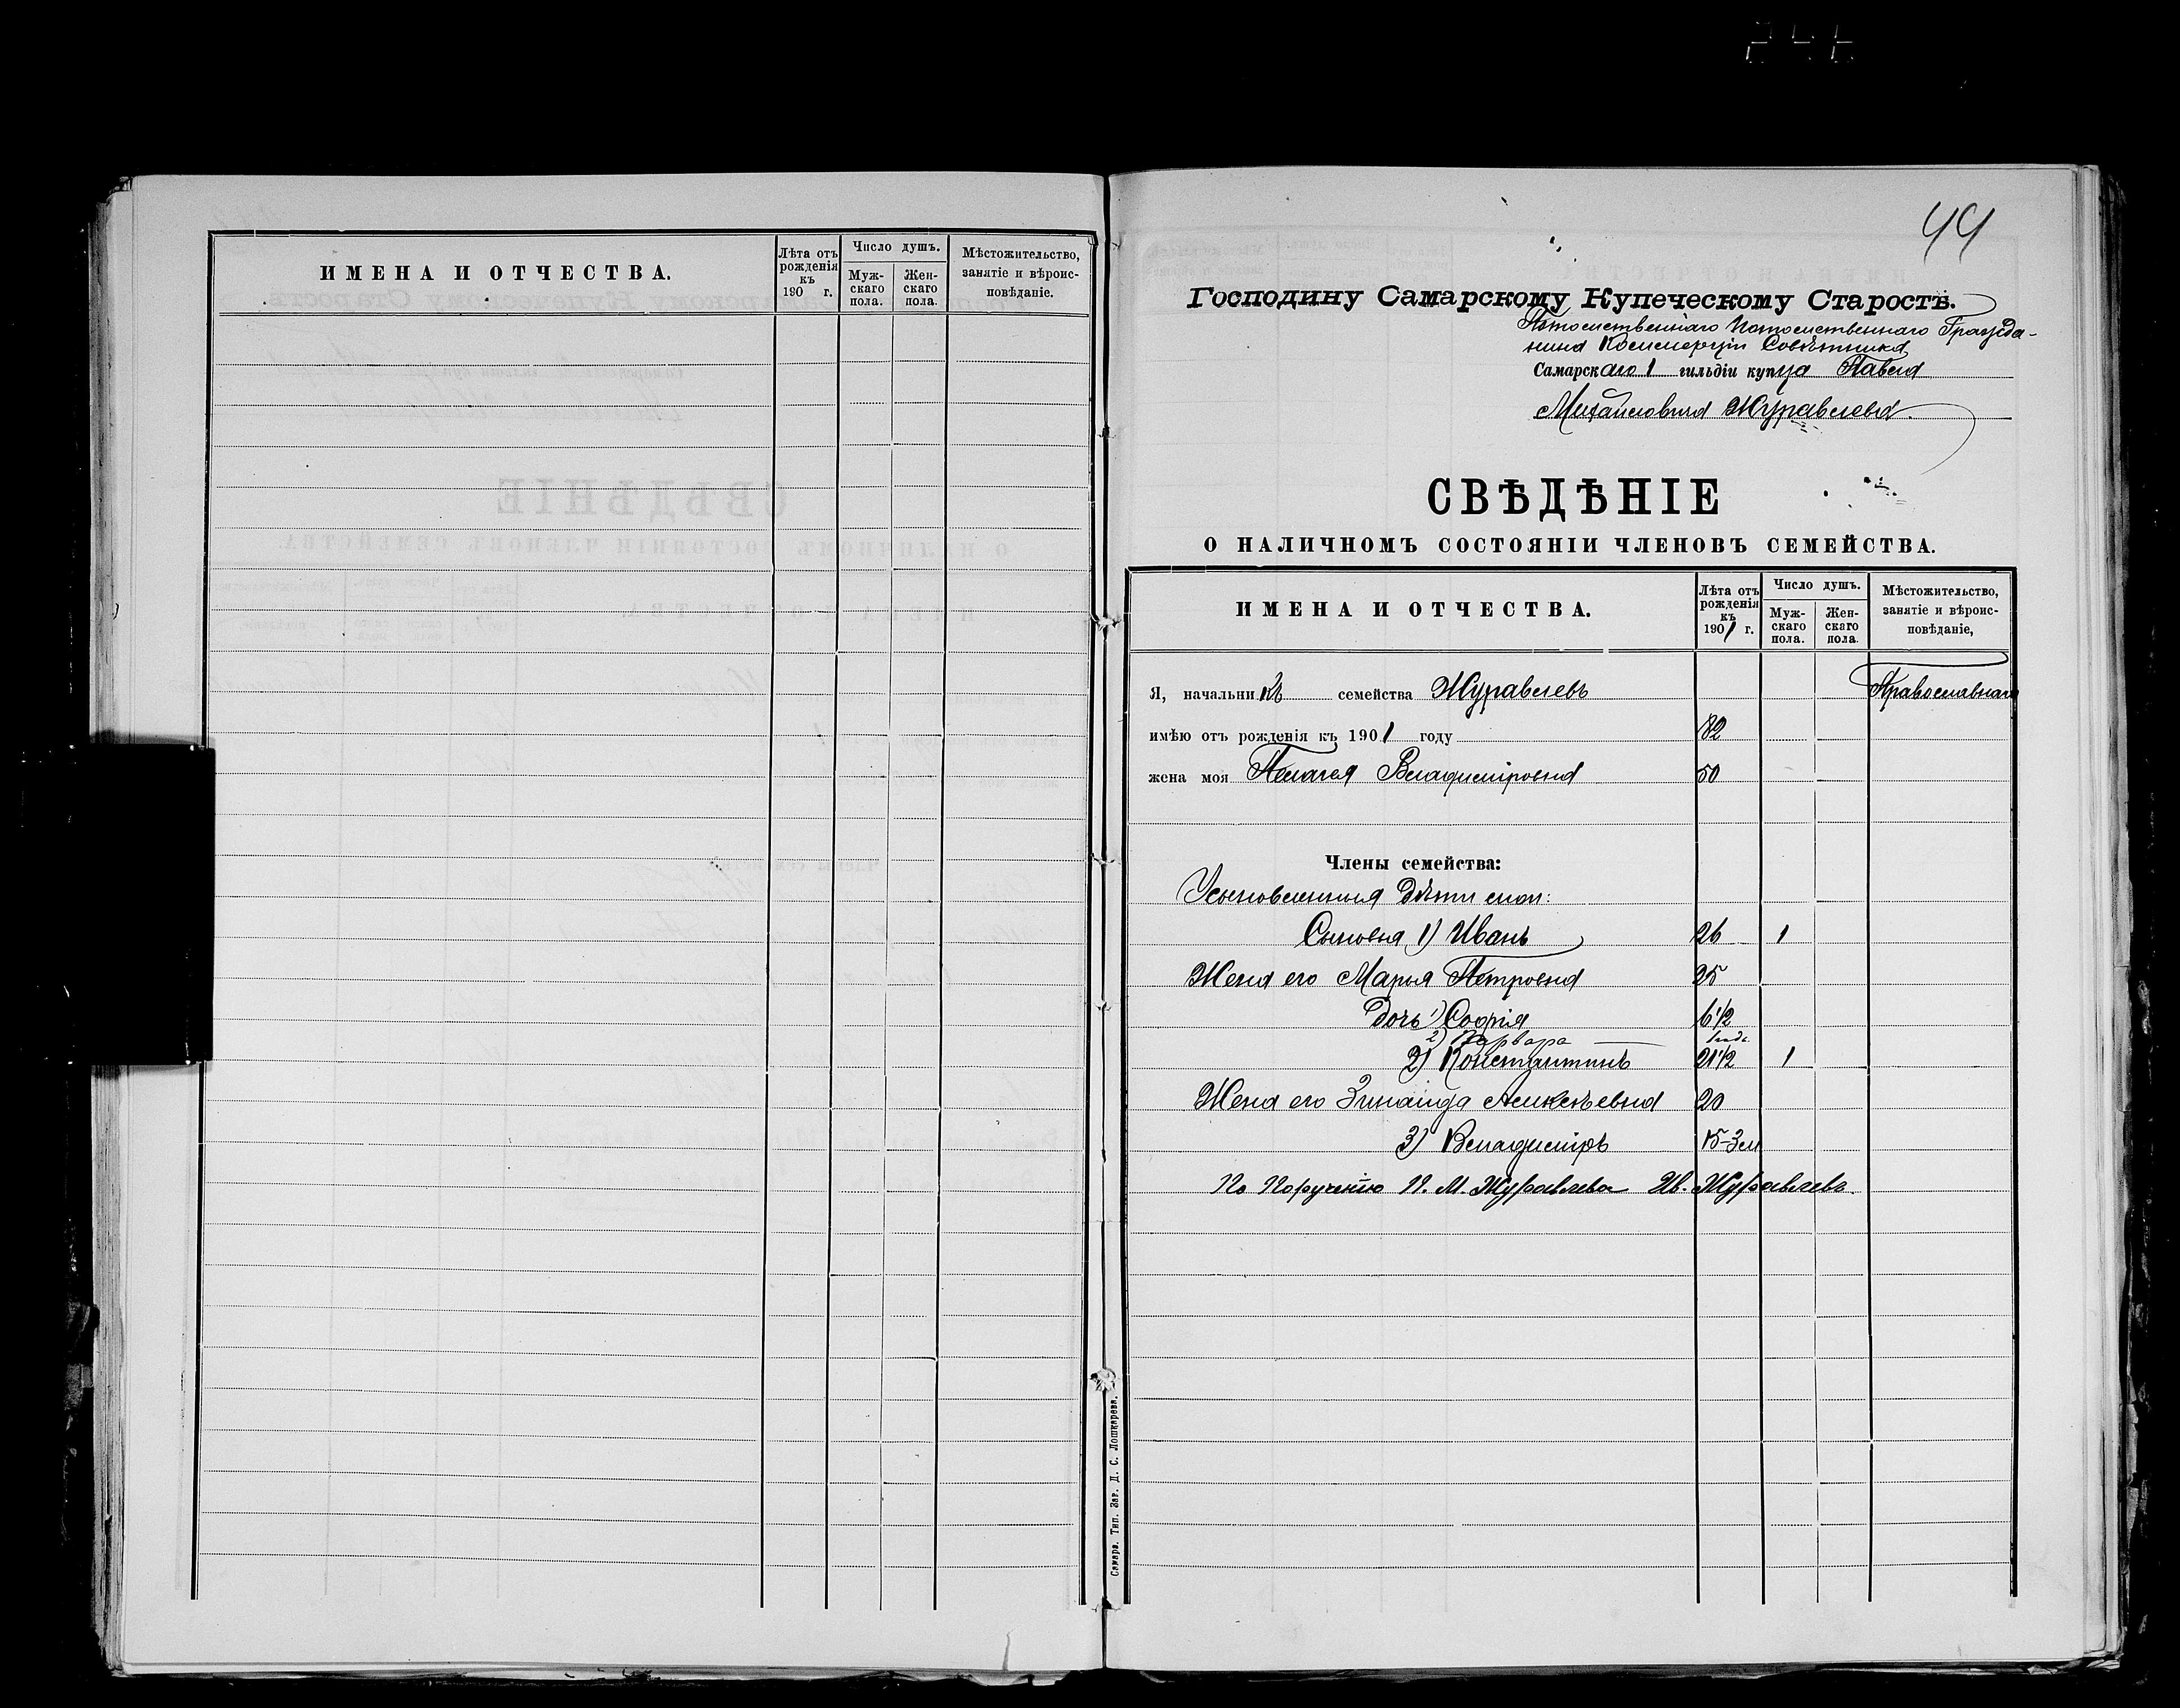 ИМЕНА И ОТЧЕСТВА.
Лѣта отъ рожденія къ 190 г.
Число душъ.
Мужскаго пола.
Женскаго пола.
Мѣстожительство, занятіе и вѣроисповѣданіе.
44
Господину Самарскому Купеческому Старостѣ.
Потомственнаго Потомственнаго Гражда-
нина Коммерціи Совѣтника
Самарскаго 1 гильдіи купца Павла
Михайловича Журавлева.
СВѢДѢНІЕ
О НАЛИЧНОМЪ СОСТОЯНІИ ЧЛЕНОВЪ СЕМЕЙСТВА.
ИМЕНА И ОТЧЕСТВА.
Лѣта отъ рожденія къ 1901 г.
Число душъ.
Мужскаго пола.
Женскаго пола.
Мѣстожительство, занятіе и вѣроисповѣданіе,
Я, начальникъ семейства Журавлевъ Православнаго
имѣю отъ рожденія къ 1901 году 82
жена моя Пелагея Владиміровна 50
Члены семейства:
Усыновленныя дѣти мои:
Сыновья 1) Иванъ 26 1
Жена его Марья Петровна 25
дочь 1) София 6 1/2
2) Варвара
2) Константинъ 21 1/2 1
Жена его Зинаида Алексѣевна 20
3) Владиміръ 15-3 м
По порученію П. М. Журавлева Ив. Журавлевъ.
Самара. Тип. Заг. Д. С. Лошкарева.